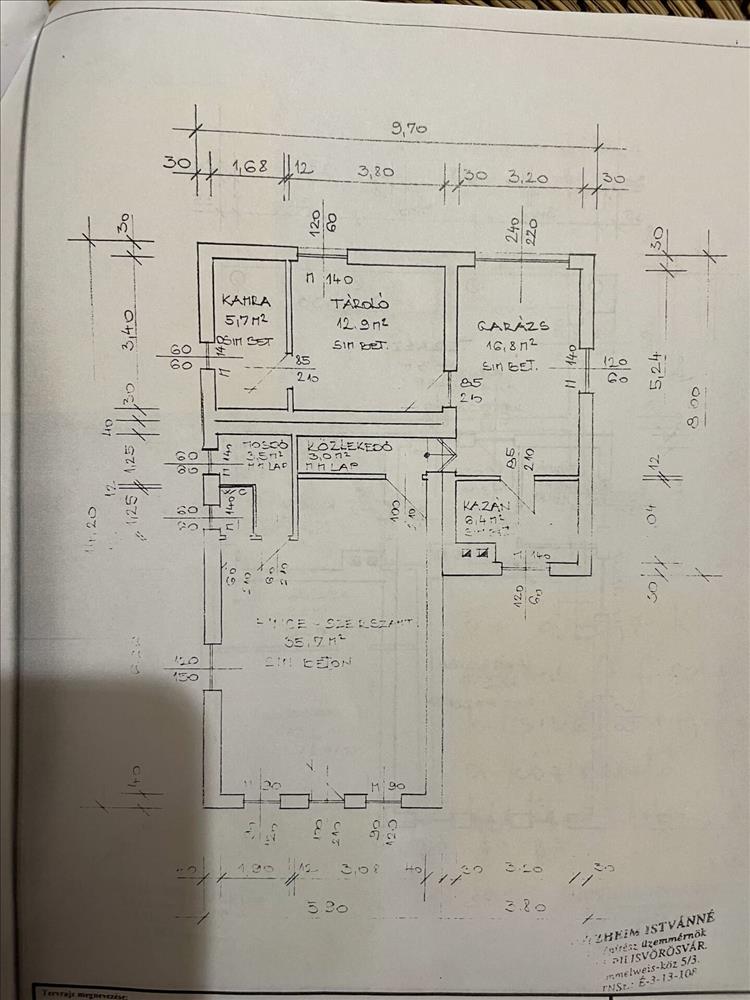 9,70
30 1,68 12 3,80 30 3,20 30
120
60
240
220
30
3,40
30
40
1,25
12
1,25
11,20
40
30
5,24
8,00
12
30
M 140
KAMRA
5,7 M²
SIM BET
TÁROLÓ
12.9 M²
SIM BET.
GARÁZS
16,8 M²
SIM BET.
60
60
M 140
85
210
85
210
M 140
120
60
60
60
M 140
MOSDÓ
3,5 M²
MM LAP
KÖZLEKEDŐ
3,0 M²
MM LAP
85
210
60
60
M 140
100
210
KAZÁN
6,4 M²
60
210
60
210
140
120
60
PINCE - SZERSZÁMT.
35,7 M²
SIM BETON
120
150
M 90
M 90
100
210
90
120
1,90 12 3,08 40 30 3.20 30
5.90 3.80
ISTVÁNNÉ
üzemmérnök
PILISVÖRÖSVÁR.
mmelweis-köz 5/3.
TNSz.: É-3-13-108
Tervrajz megnevezése: